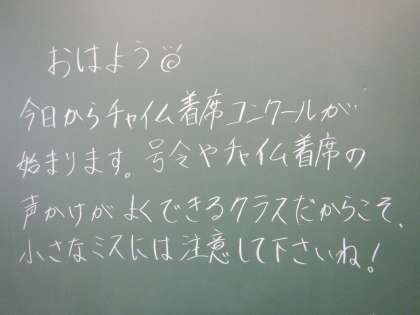 おはよう
今日からチャイム着席コンクールが
始まります。号令やチャイム着席の
声かけがよくできるクラスだからこそ、
小さなミスには注意して下さいね!